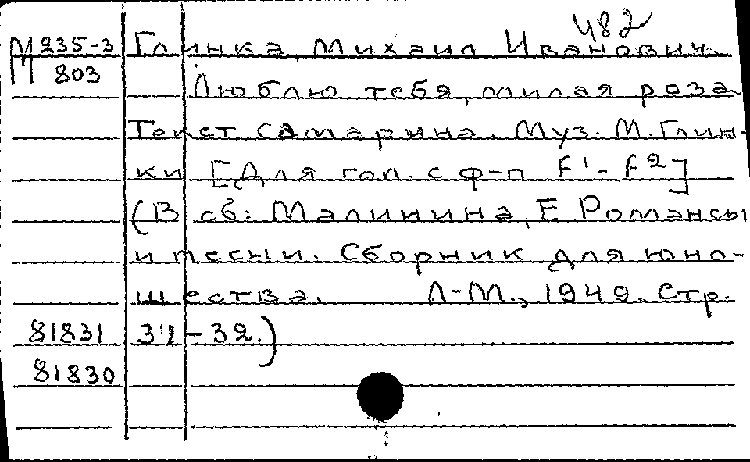 482
М235-3 Глинка, Михаил Иванович.
П 803 Люблю тебя, милая роза
Текст Самарина. Муз. М. Глин-
ки [Для гол. с ф-п f¹-f²]
(В сб: Малинина, Е Романсы
и песни. Сборник для юно-
шества. Л-М., 1949. Стр.
81831 31-32.)
81830